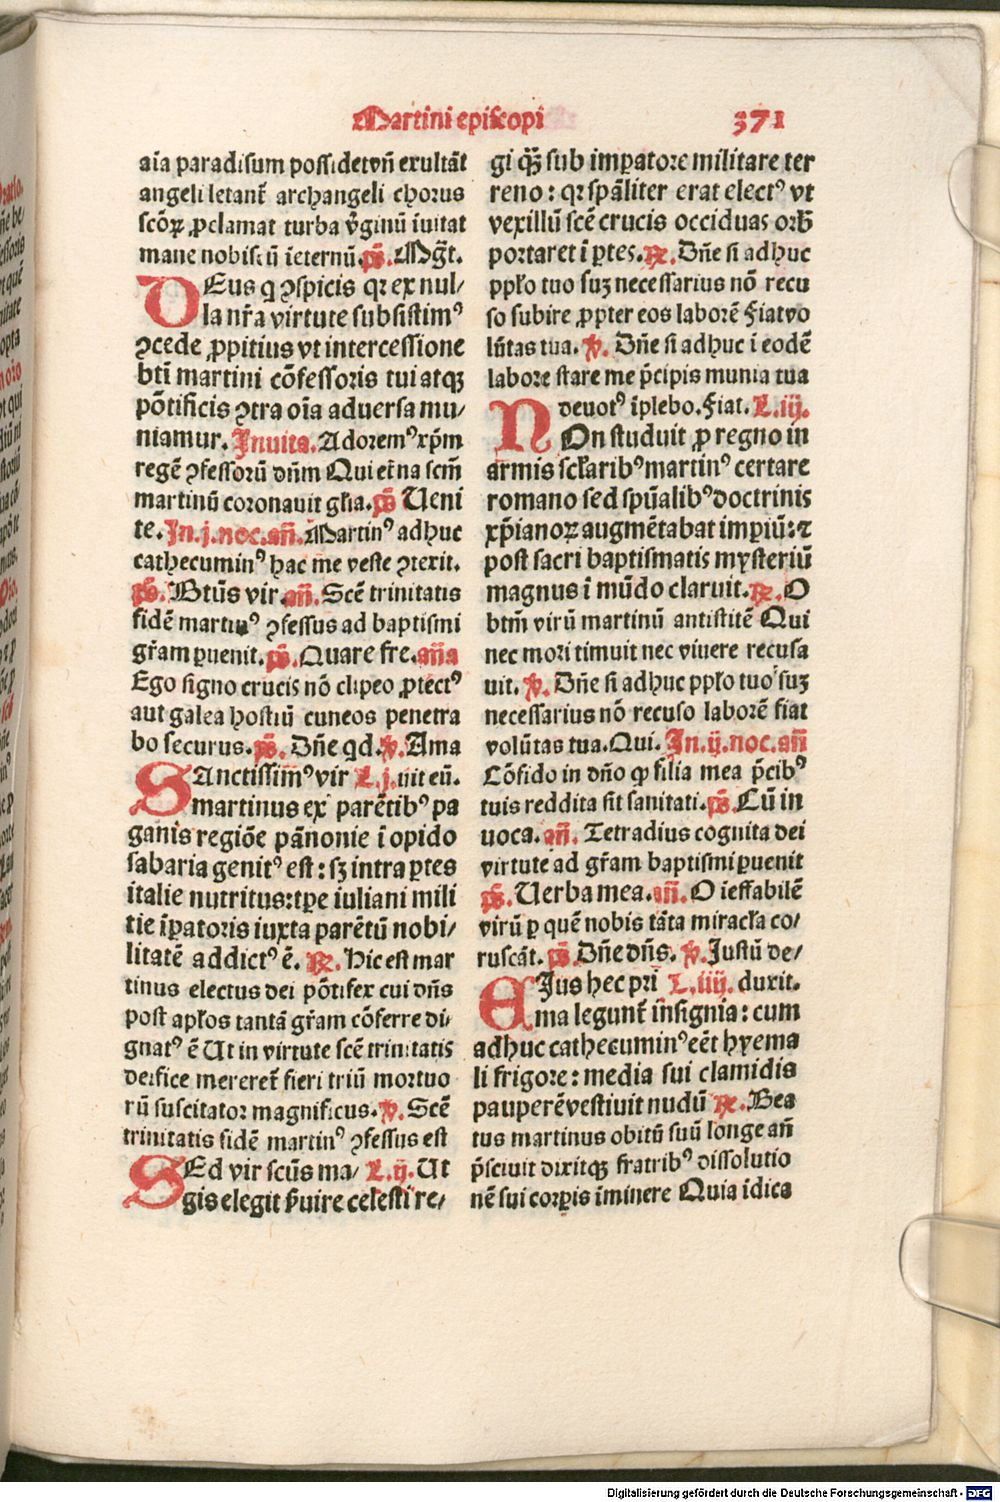 Martini episcopi 371
aīa paradisum possidet vn̄ exultāt
angeli letant᷑ archangeli chorus
scōꝝ ꝓclamat turba v̄ginū īuitat
mane nobiscū īeternū. ps̄. Mḡt.
DEus q ꝯspicis qꝛ ex nul⸗
la nr̄a virtute subsistimꝰ
ꝯcede ꝓpitius vt intercessione
bti̅ martini cōfessoris tui atqꝫ
pōtificis ꝯtra oīa aduersa mu⸗
niamur. Inuita. Adoremꝰ xp̄m
regē ꝯfessorū dn̄m Qui et̄na scm̄
martinū coronauit gl̄ia. ps̄ Ueni
te. In .j. noc. an̄. Martinꝰ adhuc
cathecuminꝰ hac me veste ꝯtexit.
ps̄. Btūs vir. an̄. Scē trinitatis
fidē martinꝰ ꝯfessus ad baptismi
gr̄am ꝑuenit. ps̄. Quare fre. an̄a
Ego signo crucis nō clipeo ꝓtectꝰ
aut galea hostiū cuneos penetra
bo securus. ps̄. Dn̄e qd. v̄. Ama
SAnctissim̄ꝰ vir L.j. uit eū.
martinus ex parētibꝰ pa
ganis regiōe pānonie ī opido
sabaria genitꝰ est: sꝫ intra ꝑtes
italie nutritus: tꝑe iuliani mili
tie īꝑatoris iuxta parētū nobi⸗
litatē addictꝰ ē. ℞. Hic est mar
tinus electus dei pōtifex cui dn̄s
post apl̄os tantā gr̄am cōferre di⸗
gnatꝰ ē Ut in virtute scē trinitatis
deifice mereret᷑ fieri triū mortuo
rū suscitator magnificus. v̄. Scē
trinitatis fidē martinꝰ ꝯfessus est
SEd vir scūs ma⸗ L.ij. Ut
gis elegit ẜuire celesti re⸗
gi qꝫ̄ sub imꝑatore militare ter
reno: qꝛ spāliter erat electꝰ vt
vexillū scē crucis occiduas orb̄
portaret ī ꝑtes. ℞. Dn̄e si adhuc
ppl̄o tuo suꝫ necessarius nō recu
so subire ꝓpter eos laborē Fiat vo
lūtas tua. v̄. Dn̄e si adhuc ī eodē
labore stare me p̄cipis munia tua
deuotꝰ īplebo. Fiat. L.iij.
NOn studuit ꝓ regno in
armis scl̄aribꝰ martinꝰ certare
romano sed spūalibꝰ doctrinis
xp̄ianoꝝ augmētabat imꝑiū: ⁊
post sacri baptismatis mysteriū
magnus ī mūdo claruit. ℞. O
btm̄ virū martinū antistitē Qui
nec mori timuit nec viuere recusa
uit. v̄. Dn̄e si adhuc ppl̄o tuo suꝫ
necessarius nō recuso laborē fiat
volūtas tua. Qui. In .ij. noc. an̄
Cōfido in dn̄o ꝙ filia mea p̄cibꝰ
tuis reddita sit sanitati. ps̄. Cū in
uoca. an̄. Tetradius cognita dei
virtute ad gr̄am baptismi ꝑuenit
ps̄. Uerba mea. an̄. O ieffabilē
virū ꝑ quē nobis tāta miracl̄a co⸗
ruscāt. ps̄ Dn̄e dn̄s. v̄. Justū de⸗
EJus hec pri L.iiij. duxit.
ma legunt᷑ īnsignia: cum
adhuc cathecuminꝰ eēt hyema
li frigore: media sui clamidis
pauperē vestiuit nudū ℞. Bea
tus martinus obitū suū longe an̄
p̄sciuit dixitqꝫ fratribꝰ dissolutio
nē sui corꝑis īminere Quia īdica
Digitalisierung gefördert durch die Deutsche Forschungsgemeinschaft - DFG